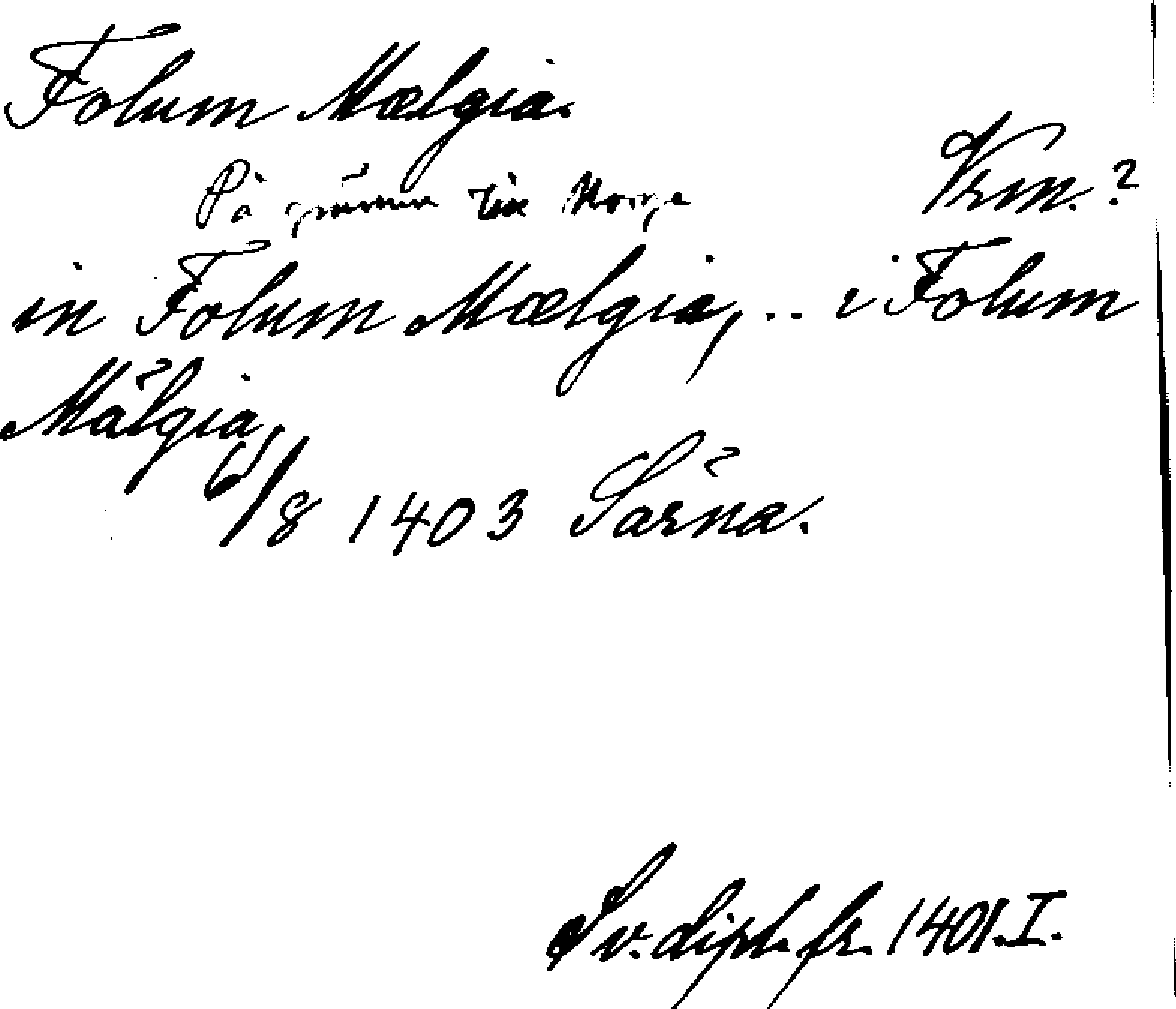 Folum Mælgia.
På gränsen till Norge
Vrm.?
in Folum Mælgia, .. i Folum
Mälgia,
6/8 1403 Särna.
Sv. dipl. fr. 1401. I.